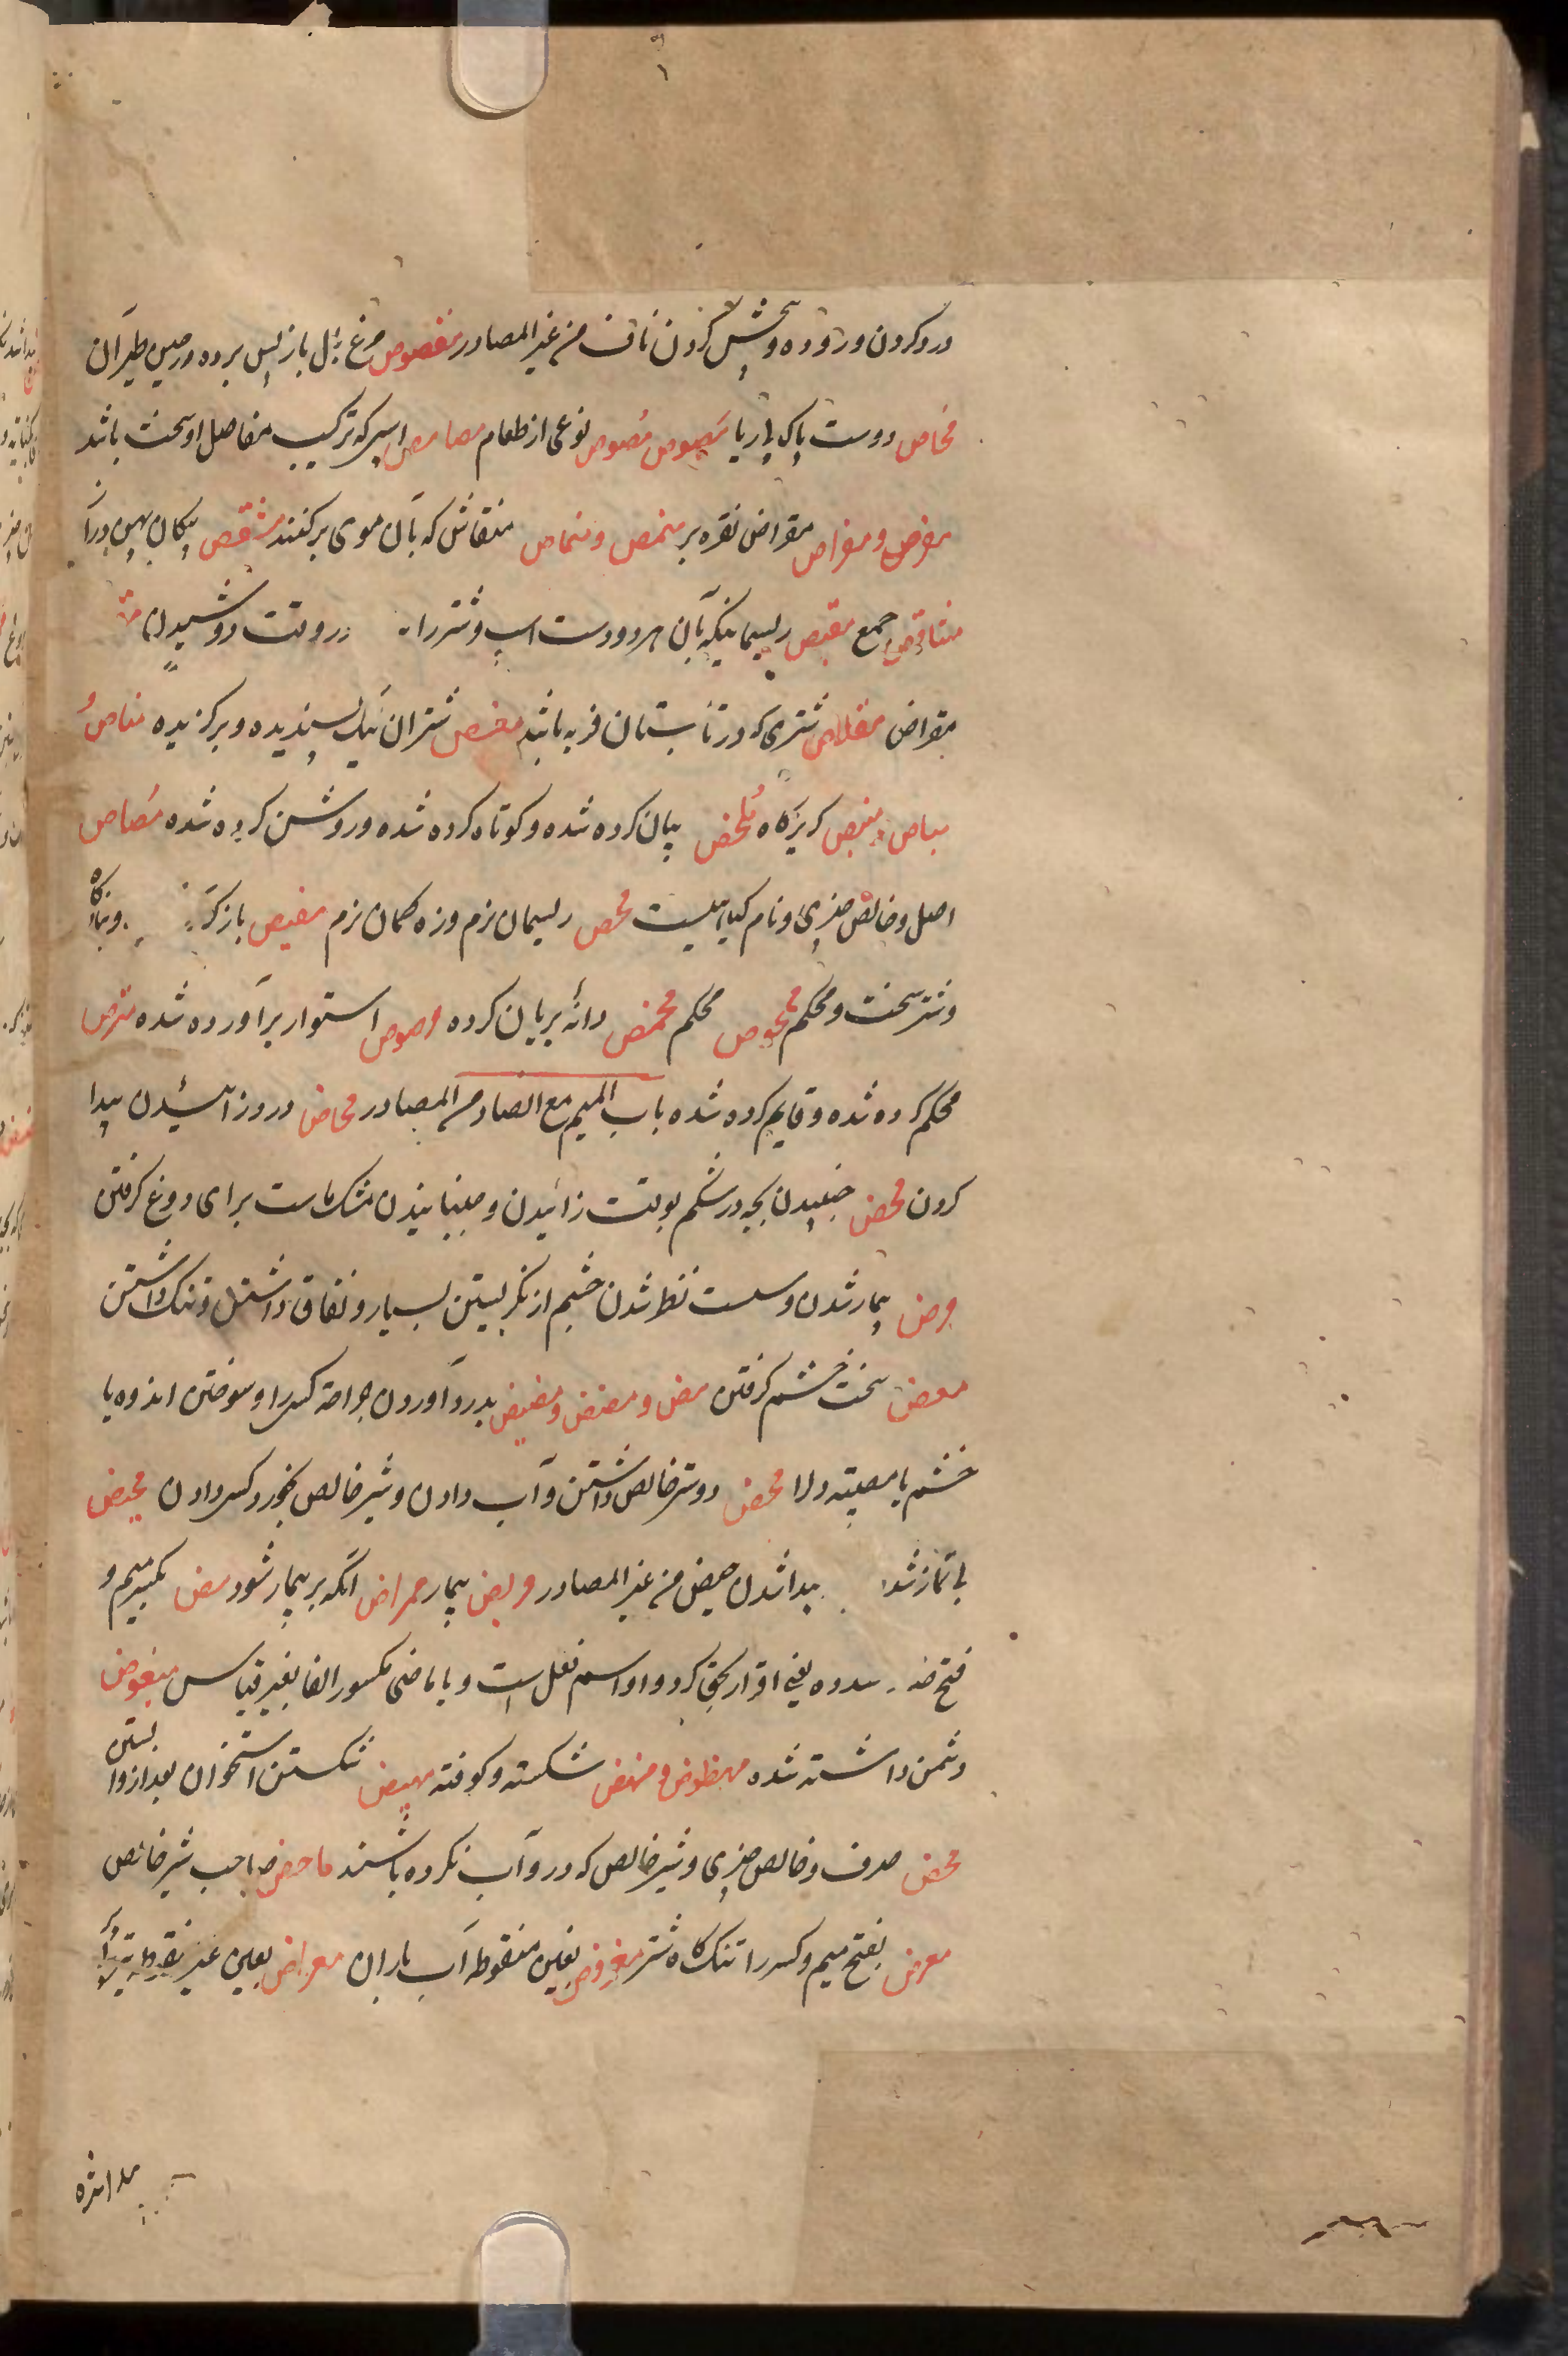 درد کردن و روده و پیچش کردن ناف من غیر المصادر مغصوص مرغ بال باز پس برده در حین طیران
مخاص دوست پاک بی ریا مَصوص مُصوص نوعی از طعام مصامص اسپی که ترکیب مفاصل او سخت باشد
مفرص و مفراص مقراض نقره بر منمص و منماص منقاش که بآن موی برکنند مشقص پیکان پهن دراز
مشاقص جمع مقبص ریسمانیکه بآن هر دو دست اسپ و شتر را در وقت دوشیدن
مقراض مقلاص شتری که در تابستان فربه باشد مغص شتران نیک پسندیده و برگزیده مناص و
گریزگاه ملخص بیان کرده شده و کوتاه کرده شده و روشن کرده شده مصاص
اصل و خالص چیزی و نام گیاهیست محص ریسمان نرم و زه کمان نرم مفیص
و شتر سخت و محکم ممحوص محکم محمص دانه بریان کرده مرصوص استوار برآورده شده مترص
محکم کرده شده و قایم کرده شده باب المیم مع الضاد من المصادر مخاض درد زائیدن پیدا
کردن مخض جنبیدن بچه در شکم بوقت زائیدن و جنبانیدن مشک ماست برای دوغ گرفتن
مرض بیمار شدن و سست نظر شدن چشم از نگریستن بسیار و نفاق داشتن و تنک داشتن
معض سخت خشم گرفتن مض و مضض و مضیض بدرد آوردن جراحة کسی را و سوختن اندوه یا
خشم یا مصیبة دل را محض دوستر خالص داشتن و آب دادن و شیر خالص بخورد کسی دادن محیض
بی نماز شدن پیدا شدن حیض من غیر المصادر مریض بیمار ممراض آنکه بر بیمار شود مض بکسر میم و
فتح ضاد یعنی اقرار بحق کرد و او اسم فعل است و با ماضی مکسور الفا بغیر قیاس مبغوض
دشمن داشته شده مهضوض و منهض شکسته و کوفته مهیض شکستن استخوان بعد از وا بستن
محض صرف و خالص چیزی و شیر خالص که در و آب نکرده باشند ماحض صاحب شیر خالص
معرض بفتح میم و کسر را تنک گاه شتر مغروض بغین منقوطه آب باران معراض بعین غیر منقوطه تیر